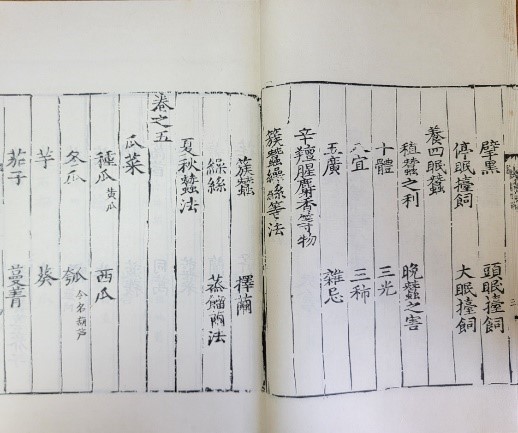 擘黑 頭眠擡飼
停眠擡飼 大眠擡飼
養四眠蠶
植蠶之利 晩蠶之害
十體 三光
八宜 三稀
五廣 雜忌
辛羶腥麝香等物
簇蠶繅絲等法
簇蠶 擇繭
繰絲 蒸餾繭法
夏秋蠶法
卷之五
瓜菜
種瓜 黄瓜 西瓜
冬瓜 瓠 今名葫芦
芋 葵
茄子 蔓菁